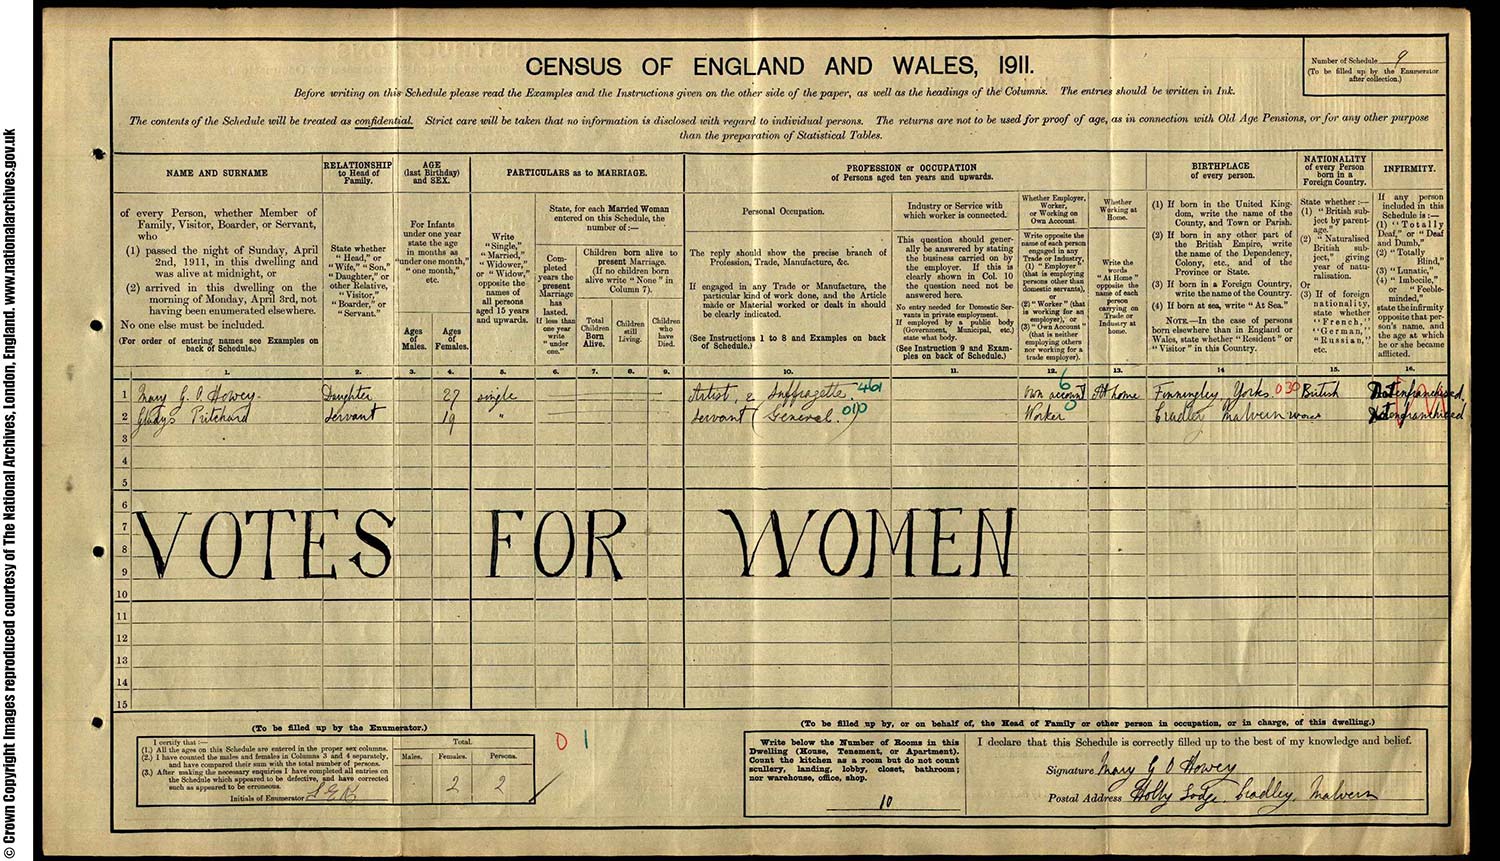 CENSUS OF ENGLAND AND WALES, 1911.
Number of Schedule 9
(To be filled up by the Enumerator
after collection.)
Before writing on this Schedule please read the Examples and the Instructions given on the other side of the paper, as well as the headings of the Columns. The entries should be written in Ink.
The contents of the Schedule will be treated as confidential. Strict care will be taken that no information is disclosed with regard to individual persons. The returns are not to be used for proof of age, as in connection with Old Age Pensions, or for any other purpose
than the preparation of Statistical Tables.
NAME AND SURNAME
of every Person, whether Member of
Family, Visitor, Boarder, or Servant,
who
(1) passed the night of Sunday, April
2nd, 1911, in this dwelling and
was alive at midnight, or
(2) arrived in this dwelling on the
morning of Monday, April 3rd, not
having been enumerated elsewhere.
No one else must be included.
(For order of entering names see Examples on
back of Schedule.)
RELATIONSHIP
to Head of
Family.
State whether
"Head," or
"Wife," "Son,"
"Daughter," or
other Relative,
"Visitor,"
"Boarder," or
"Servant."
AGE
(last Birthday)
and SEX.
For Infants
under one year
state the age
in months as
"under one month,"
"one month,"
etc.
Ages
of
Males.
Ages
of
Females.
PARTICULARS as to MARRIAGE.
Write
"Single,"
"Married,"
"Widower,"
or "Widow,"
opposite the
names of
all persons
aged 15 years
and upwards.
State, for each Married Woman
entered on this Schedule, the
number of:—
Completed
years the
present
Marriage
has
lasted.
If less than
one year
write
"under
one."
Children born alive to
present Marriage.
(If no children born
alive write "None" in
Column 7).
Total
Children
Born
Alive.
Children
still
Living.
Children
who
have
Died.
PROFESSION or OCCUPATION
of Persons aged ten years and upwards.
Personal Occupation.
The reply should show the precise branch of
Profession, Trade, Manufacture, &c.
If engaged in any Trade or Manufacture, the
particular kind of work done, and the Article
made or Material worked or dealt in should
be clearly indicated.
(See Instructions 1 to 8 and Examples on back
of Schedule.)
Industry or Service with
which worker is connected.
This question should gener-
ally be answered by stating
the business carried on by
the employer. If this is
clearly shown in Col. 10
the question need not be
answered here.
No entry needed for Domestic Ser-
vants in private employment.
If employed by a public body
(Government, Municipal, etc.)
state what body.
(See Instruction 9 and Exam-
ples on back of Schedule.)
Whether Employer,
Worker,
or Working on
Own Account.
Write opposite the
name of each person
engaged in any
Trade or Industry,
(1) "Employer"
(that is employing
persons other than
domestic servants),
or
(2) "Worker" (that
is working for an
employer), or
(3) "Own Account"
(that is neither
employing others
nor working for a
trade employer).
Whether
Working at
Home.
Write the
words
"At Home"
opposite the
name of each
person
carrying on
Trade or
Industry at
home.
BIRTHPLACE
of every person.
(1) If born in the United King-
dom, write the name of the
County, and Town or Parish.
(2) If born in any other part of
the British Empire, write
the name of the Dependency,
Colony, etc., and of the
Province or State.
(3) If born in a Foreign Country,
write the name of the Country.
(4) If born at sea, write "At Sea."
NOTE.—In the case of persons
born elsewhere than in England or
Wales, state whether "Resident" or
"Visitor" in this Country.
NATIONALITY
of every Person
born in a
Foreign Country.
State whether:—
(1) "British sub-
ject by parent-
age."
(2) "Naturalised
British sub-
ject," giving
year of natu-
ralisation.
Or
(3) If of foreign
nationality,
state whether
"French,"
"German,"
"Russian,"
etc.
INFIRMITY.
If any person
included in this
Schedule is:—
(1) "Totally
Deaf," or "Deaf
and Dumb,"
(2) "Totally
Blind,"
(3) "Lunatic,"
(4) "Imbecile,"
or "Feeble-
minded,"
state the infirmity
opposite that per-
son's name, and
the age at which
he or she became
afflicted.
1. 2. 3. 4. 5. 6. 7. 8. 9. 10. 11. 12. 13. 14 15. 16.
1 Mary G. O Howey. Daughter 27 single Artist, & Suffragette. 461 own account 6 At home Finningley Yorks. 030 British Not enfranchised.
2 Gladys Pritchard servant 19 " servant (General.) 010 Worker 0 Cradley Malvern Worcs Not enfranchised
3
4
5
6
7
8
9
10
11
12
13
14
15
VOTES FOR WOMEN
(To be filled up by the Enumerator.)
I certify that:—
(1.) All the ages on this Schedule are entered in the proper sex columns.
(2.) I have counted the males and females in Columns 3 and 4 separately,
and have compared their sum with the total number of persons.
(3.) After making the necessary enquiries I have completed all entries on
the Schedule which appeared to be defective, and have corrected
such as appeared to be erroneous.
Initials of Enumerator
Total.
Males. Females. Persons.
2 2
0 1
(To be filled up by, or on behalf of, the Head of Family or other person in occupation, or in charge, of this dwelling.)
Write below the Number of Rooms in this
Dwelling (House, Tenement, or Apartment).
Count the kitchen as a room but do not count
scullery, landing, lobby, closet, bathroom;
nor warehouse, office, shop.
10
I declare that this Schedule is correctly filled up to the best of my knowledge and belief.
Signature Mary G O Howey
Postal Address Holly Lodge, Cradley, Malvern
© Crown Copyright Images reproduced courtesy of The National Archives, London, England, www.nationalarchives.gov.uk